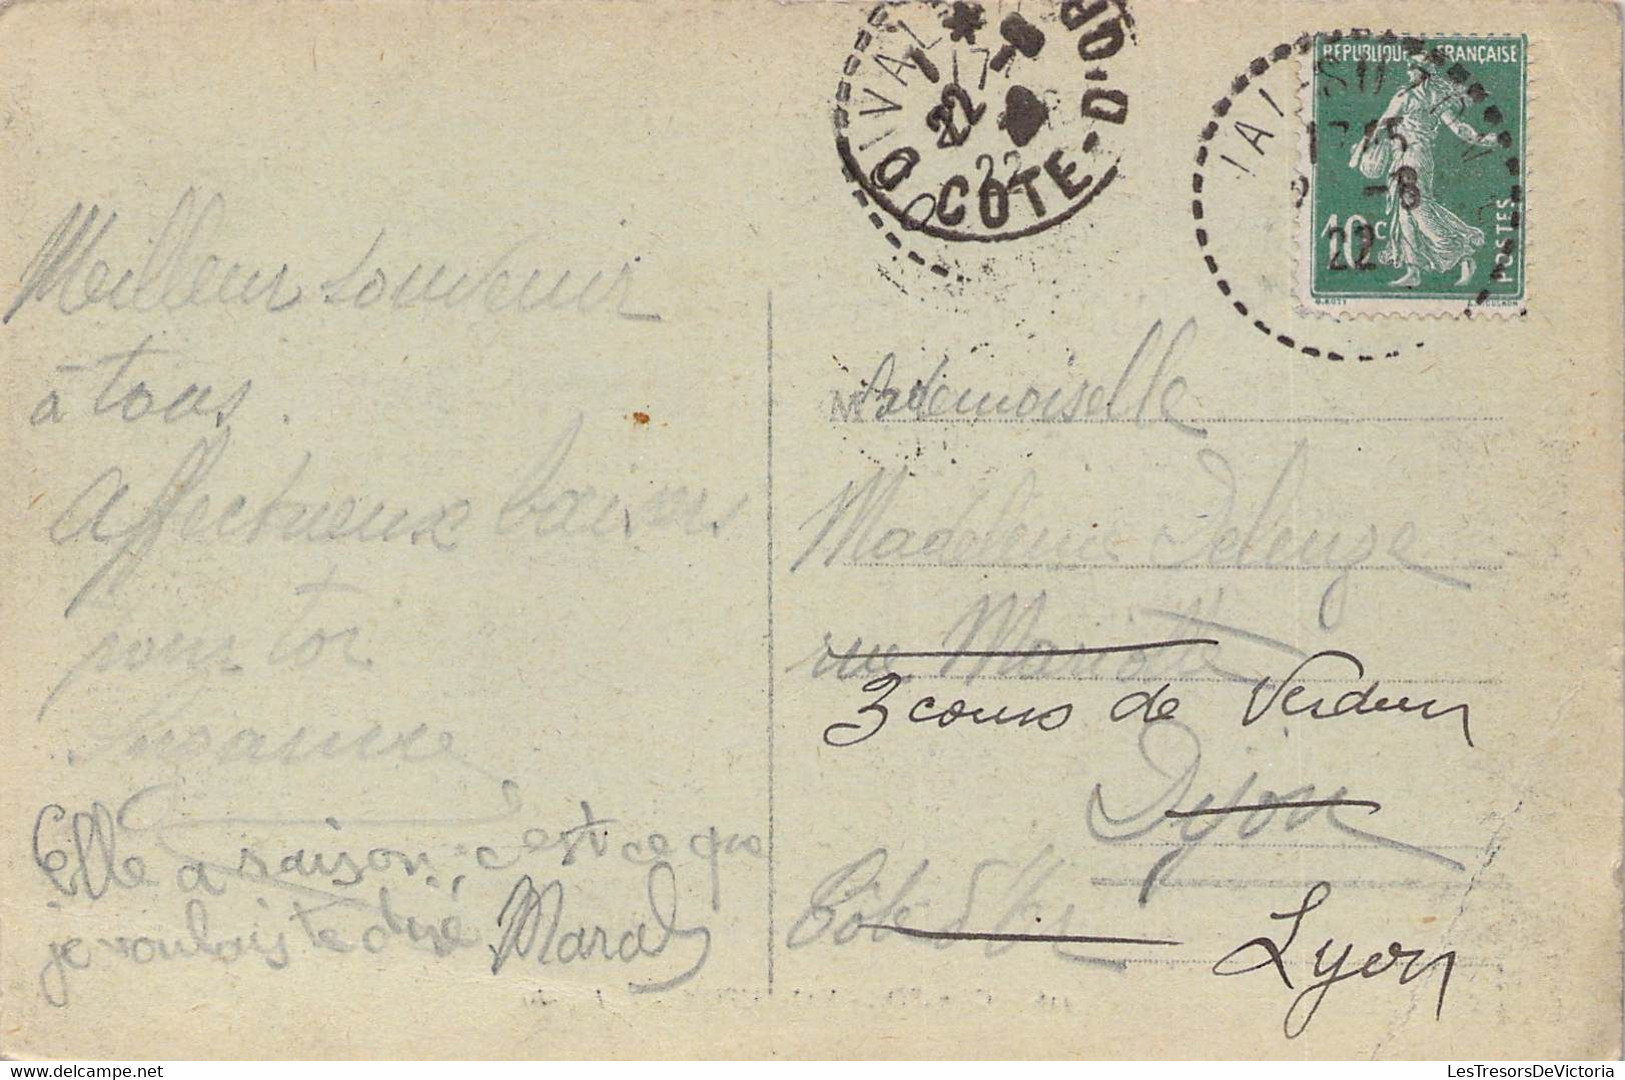 Meilleur souvenir
à tous.
Affectueux baisers
pour toi
Suzanne
Elle a raison, c'est ce que
je voulais te dire
COTE-D'OR
22
22
REPUBLIQUE FRANÇAISE
17 45
-8
22
10 c
POSTES
Mademoiselle
Madeleine Deleuze
rue Mariotte
3 cours de Verdun
Dijon
Côte d'Or
Lyon
LesTresorsDeVictoria